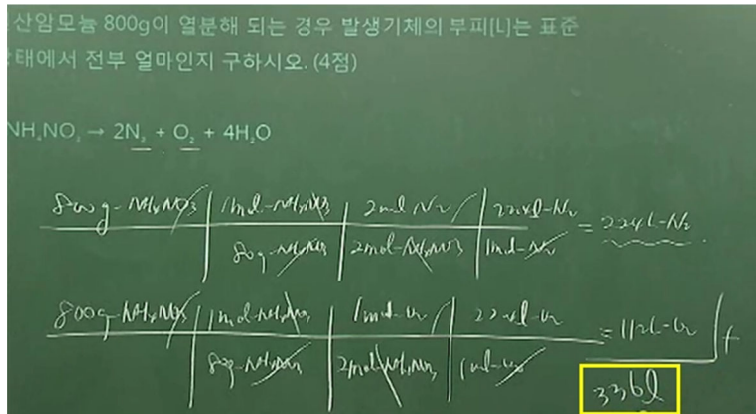 산암모늄 800g이 열분해 되는 경우 발생기체의 부피[L]는 표준
태에서 전부 얼마인지 구하시오. (4점)
NH₄NO₃ → 2N₂ + O₂ + 4H₂O
800g-NH₄NO₃ | 1mol-NH₄NO₃ | 2mol N₂ | 22.4l-N₂ = 224l-N₂
80g-NH₄NO₃ | 2mol-NH₄NO₃ | 1mol-N₂
800g-NH₄NO₃ | 1mol-NH₄NO₃ | 1mol-O₂ | 22.4l-O₂ = 112l-O₂ +
80g-NH₄NO₃ | 2mol-NH₄NO₃ | 1mol-O₂
336l